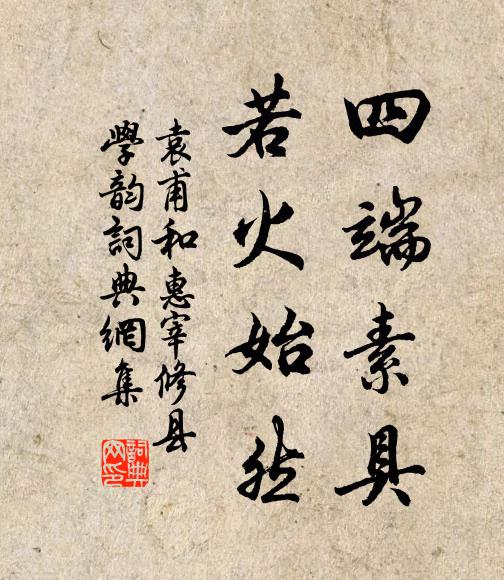 四端素具
若火始然
袁甫和惠宰修县
学韵词典網集
詞典
网印